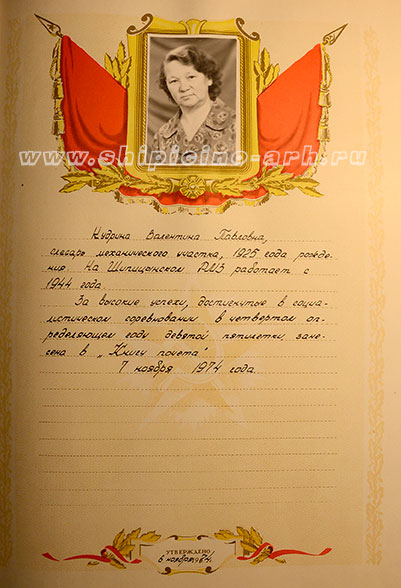 www.shipicino-arh.ru
Кудрина Валентина Павловна,
слесарь механического участка, 1925 года рожде-
ния. На Шипицынском РМЗ работает с
1944 года.
За высокие успехи, достигнутые в социа-
листическом соревновании в четвертом оп-
ределяющем году девятой пятилетки, зане-
сена в „Книгу почета"
7 ноября 1974 года.
УТВЕРЖДЕНО
6 ноября 1974г.